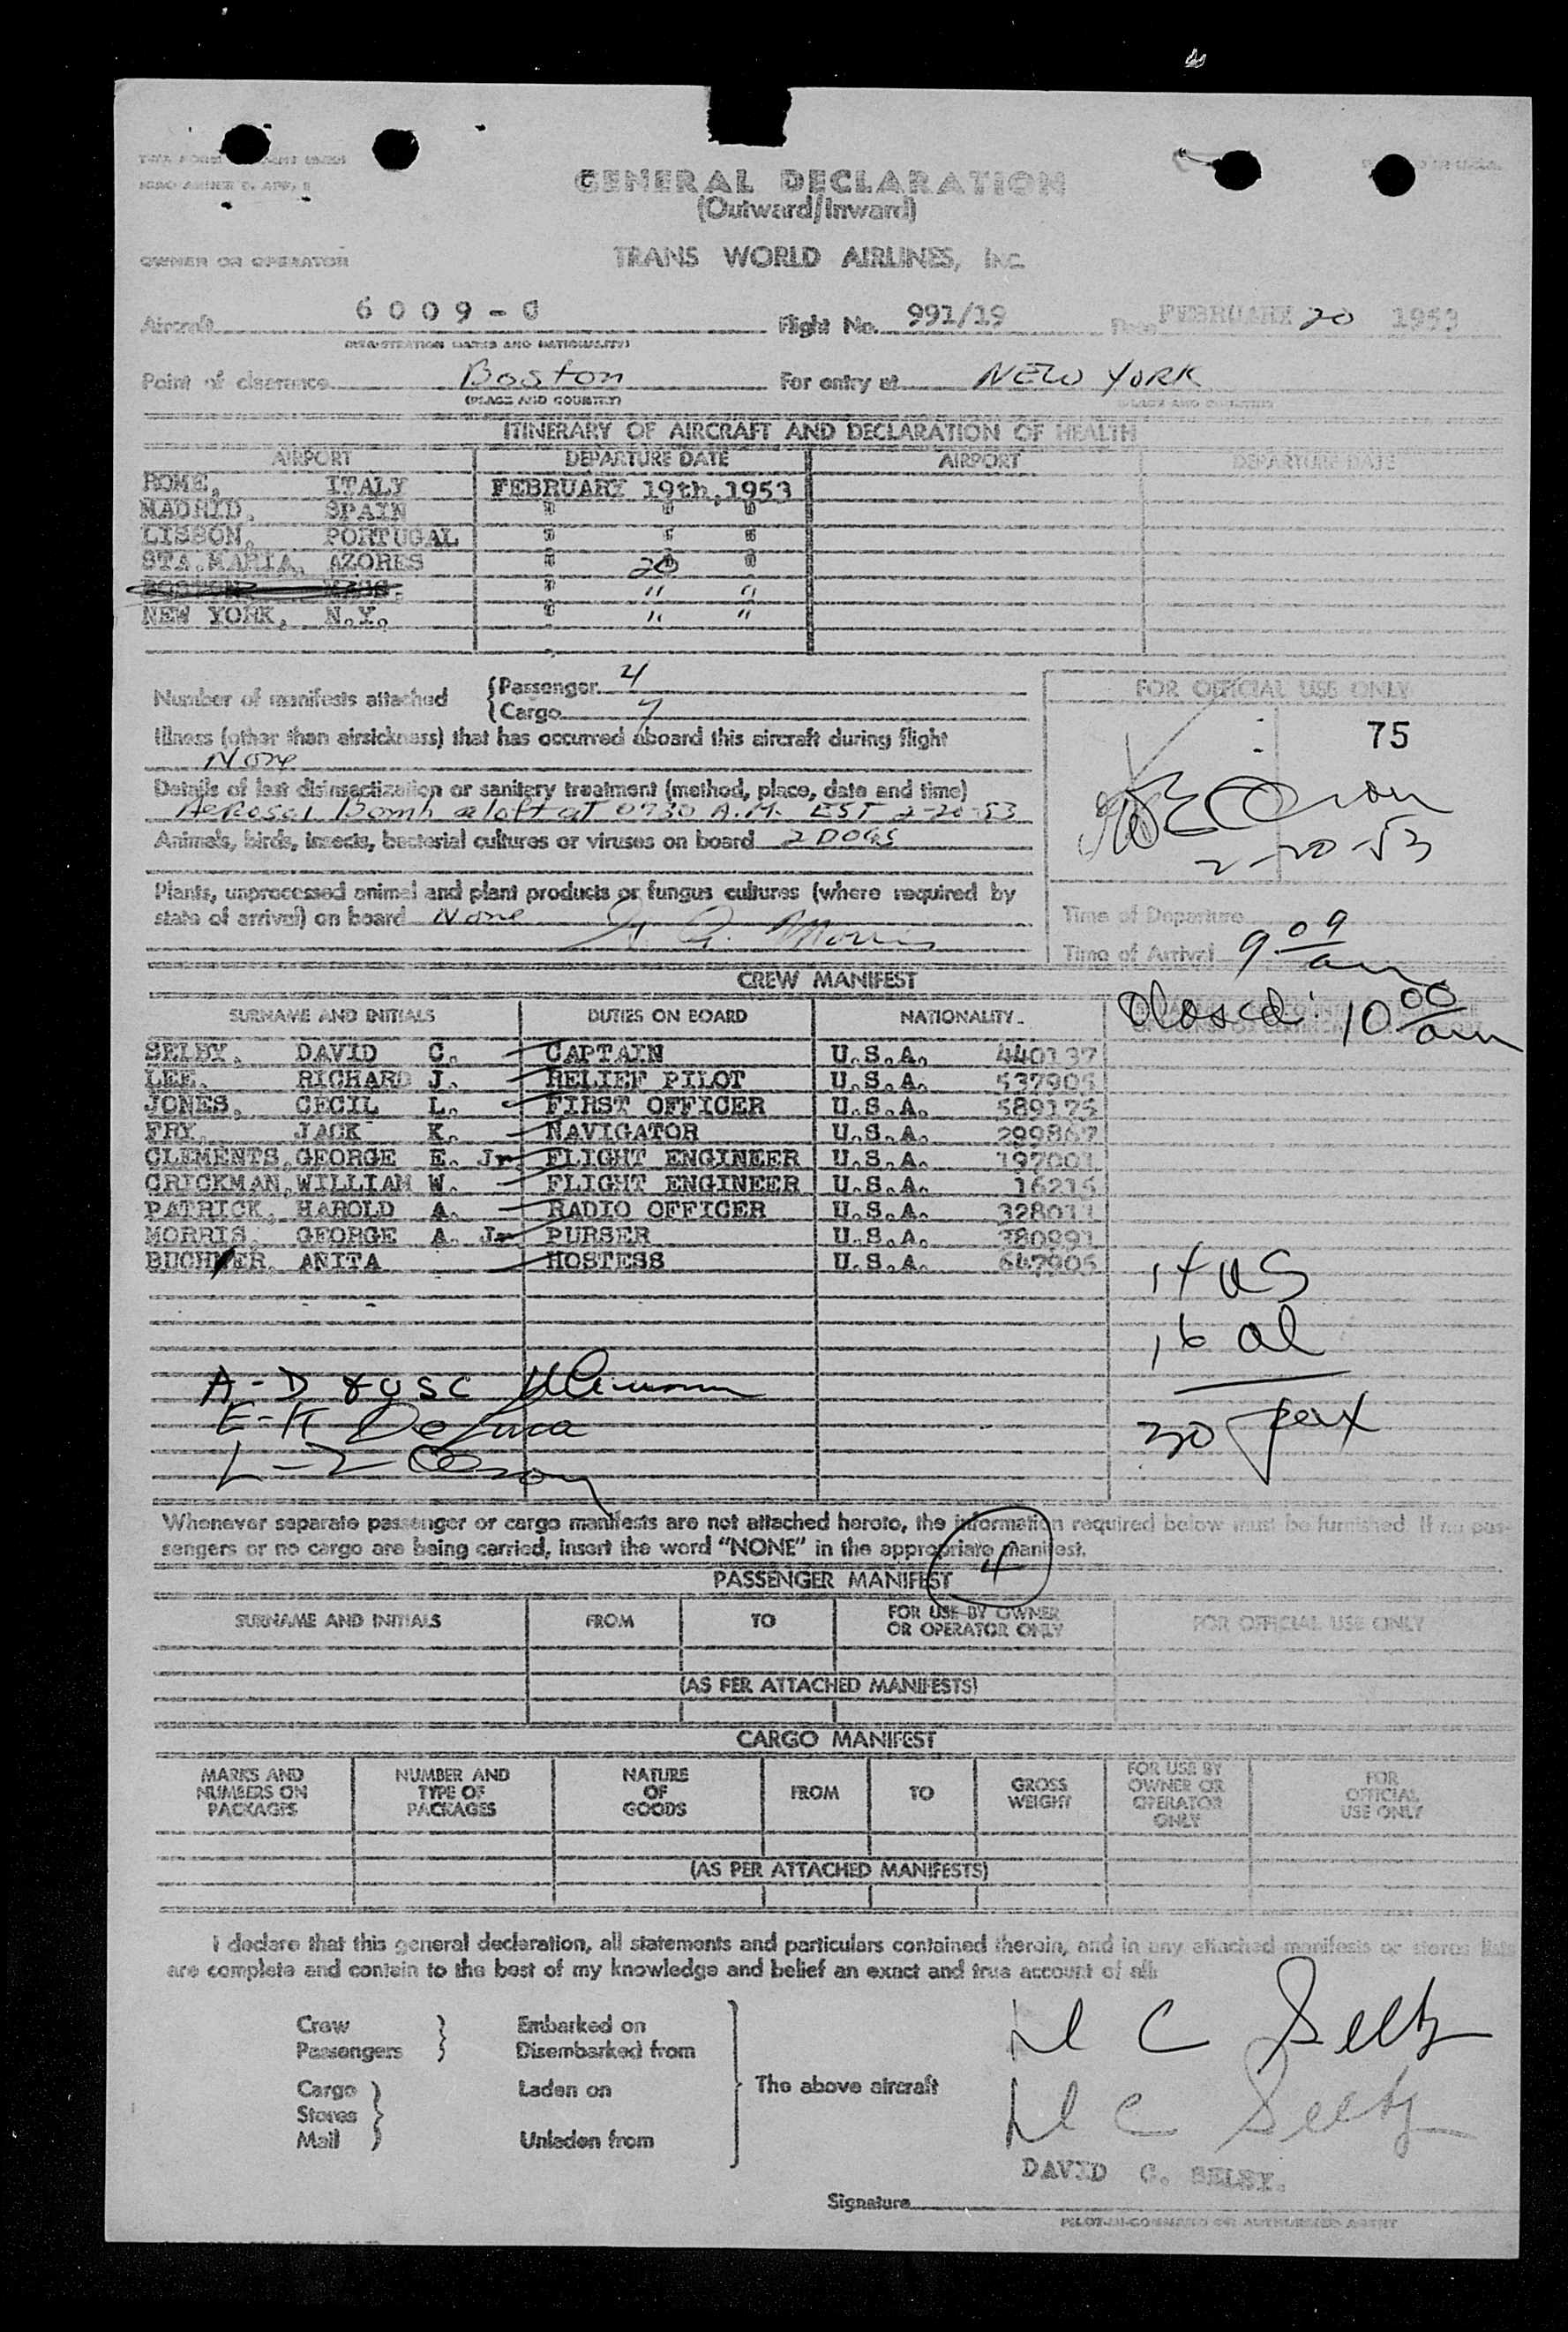 GENERAL DECLARATION
(Outward/Inward)
OWNER OR OPERATOR TRANS WORLD AIRLINES, Inc.
Aircraft 6009-C Flight No. 991/19 Date FEBRUARY 20 1953
(REGISTRATION MARKS AND NATIONALITY)
Point of clearance Boston For entry at NEW YORK
(PLACE AND COUNTRY) (PLACE AND COUNTRY)
ITINERARY OF AIRCRAFT AND DECLARATION OF HEALTH
AIRPORT DEPARTURE DATE AIRPORT DEPARTURE DATE
ROME, ITALY FEBRUARY 19th, 1953
MADRID, SPAIN " " "
LISBON, PORTUGAL " " "
STA.MARIA, AZORES " 20 "
BOSTON, MASS. " " "
NEW YORK, N.Y. " " "
Number of manifests attached { Passenger 4
{ Cargo 7
FOR OFFICIAL USE ONLY
75
Illness (other than airsickness) that has occurred aboard this aircraft during flight
None
Details of last disinsectization or sanitary treatment (method, place, date and time)
Aerosol Bomb aloft at 0730 A.M. EST 2-20-53
Animals, birds, insects, bacterial cultures or viruses on board 2 DOGS
2-20-53
Plants, unprocessed animal and plant products or fungus cultures (where required by
state of arrival) on board None G. A. Morris
Time of Departure
Time of Arrival 9 09 am
CREW MANIFEST
Closed: 10 00 am
SURNAME AND INITIALS DUTIES ON BOARD NATIONALITY
SELBY, DAVID C. CAPTAIN U.S.A. 440137
LEE, RICHARD J. RELIEF PILOT U.S.A. 537905
JONES, CECIL L. FIRST OFFICER U.S.A. 589175
FRY, JACK K. NAVIGATOR U.S.A. 299867
CLEMENTS, GEORGE E. Jr. FLIGHT ENGINEER U.S.A. 197001
CRICKMAN, WILLIAM W. FLIGHT ENGINEER U.S.A. 16215
PATRICK, HAROLD A. RADIO OFFICER U.S.A. 328011
MORRIS, GEORGE A. Jr PURSER U.S.A. 380991
BUCHNER, ANITA HOSTESS U.S.A. 647905
14 US
16 al
30 pax
A-D & USC
E-K DeLuca
L-Z
Whenever separate passenger or cargo manifests are not attached hereto, the information required below must be furnished. If no pas-
sengers or no cargo are being carried, insert the word "NONE" in the appropriate manifest.
4
PASSENGER MANIFEST
SURNAME AND INITIALS FROM TO FOR USE BY OWNER OR OPERATOR ONLY FOR OFFICIAL USE ONLY
(AS PER ATTACHED MANIFESTS)
CARGO MANIFEST
MARKS AND NUMBERS ON PACKAGES NUMBER AND TYPE OF PACKAGES NATURE OF GOODS FROM TO GROSS WEIGHT FOR USE BY OWNER OR OPERATOR ONLY FOR OFFICIAL USE ONLY
(AS PER ATTACHED MANIFESTS)
I declare that this general declaration, all statements and particulars contained therein, and in any attached manifests or stores lists
are complete and contain to the best of my knowledge and belief an exact and true account of all:
Crew } Embarked on
Passengers } Disembarked from
Cargo } Laden on } The above aircraft
Stores }
Mail } Unladen from
D C Selby
D C Selby
DAVID C. SELBY.
Signature
PILOT-IN-COMMAND OR AUTHORIZED AGENT